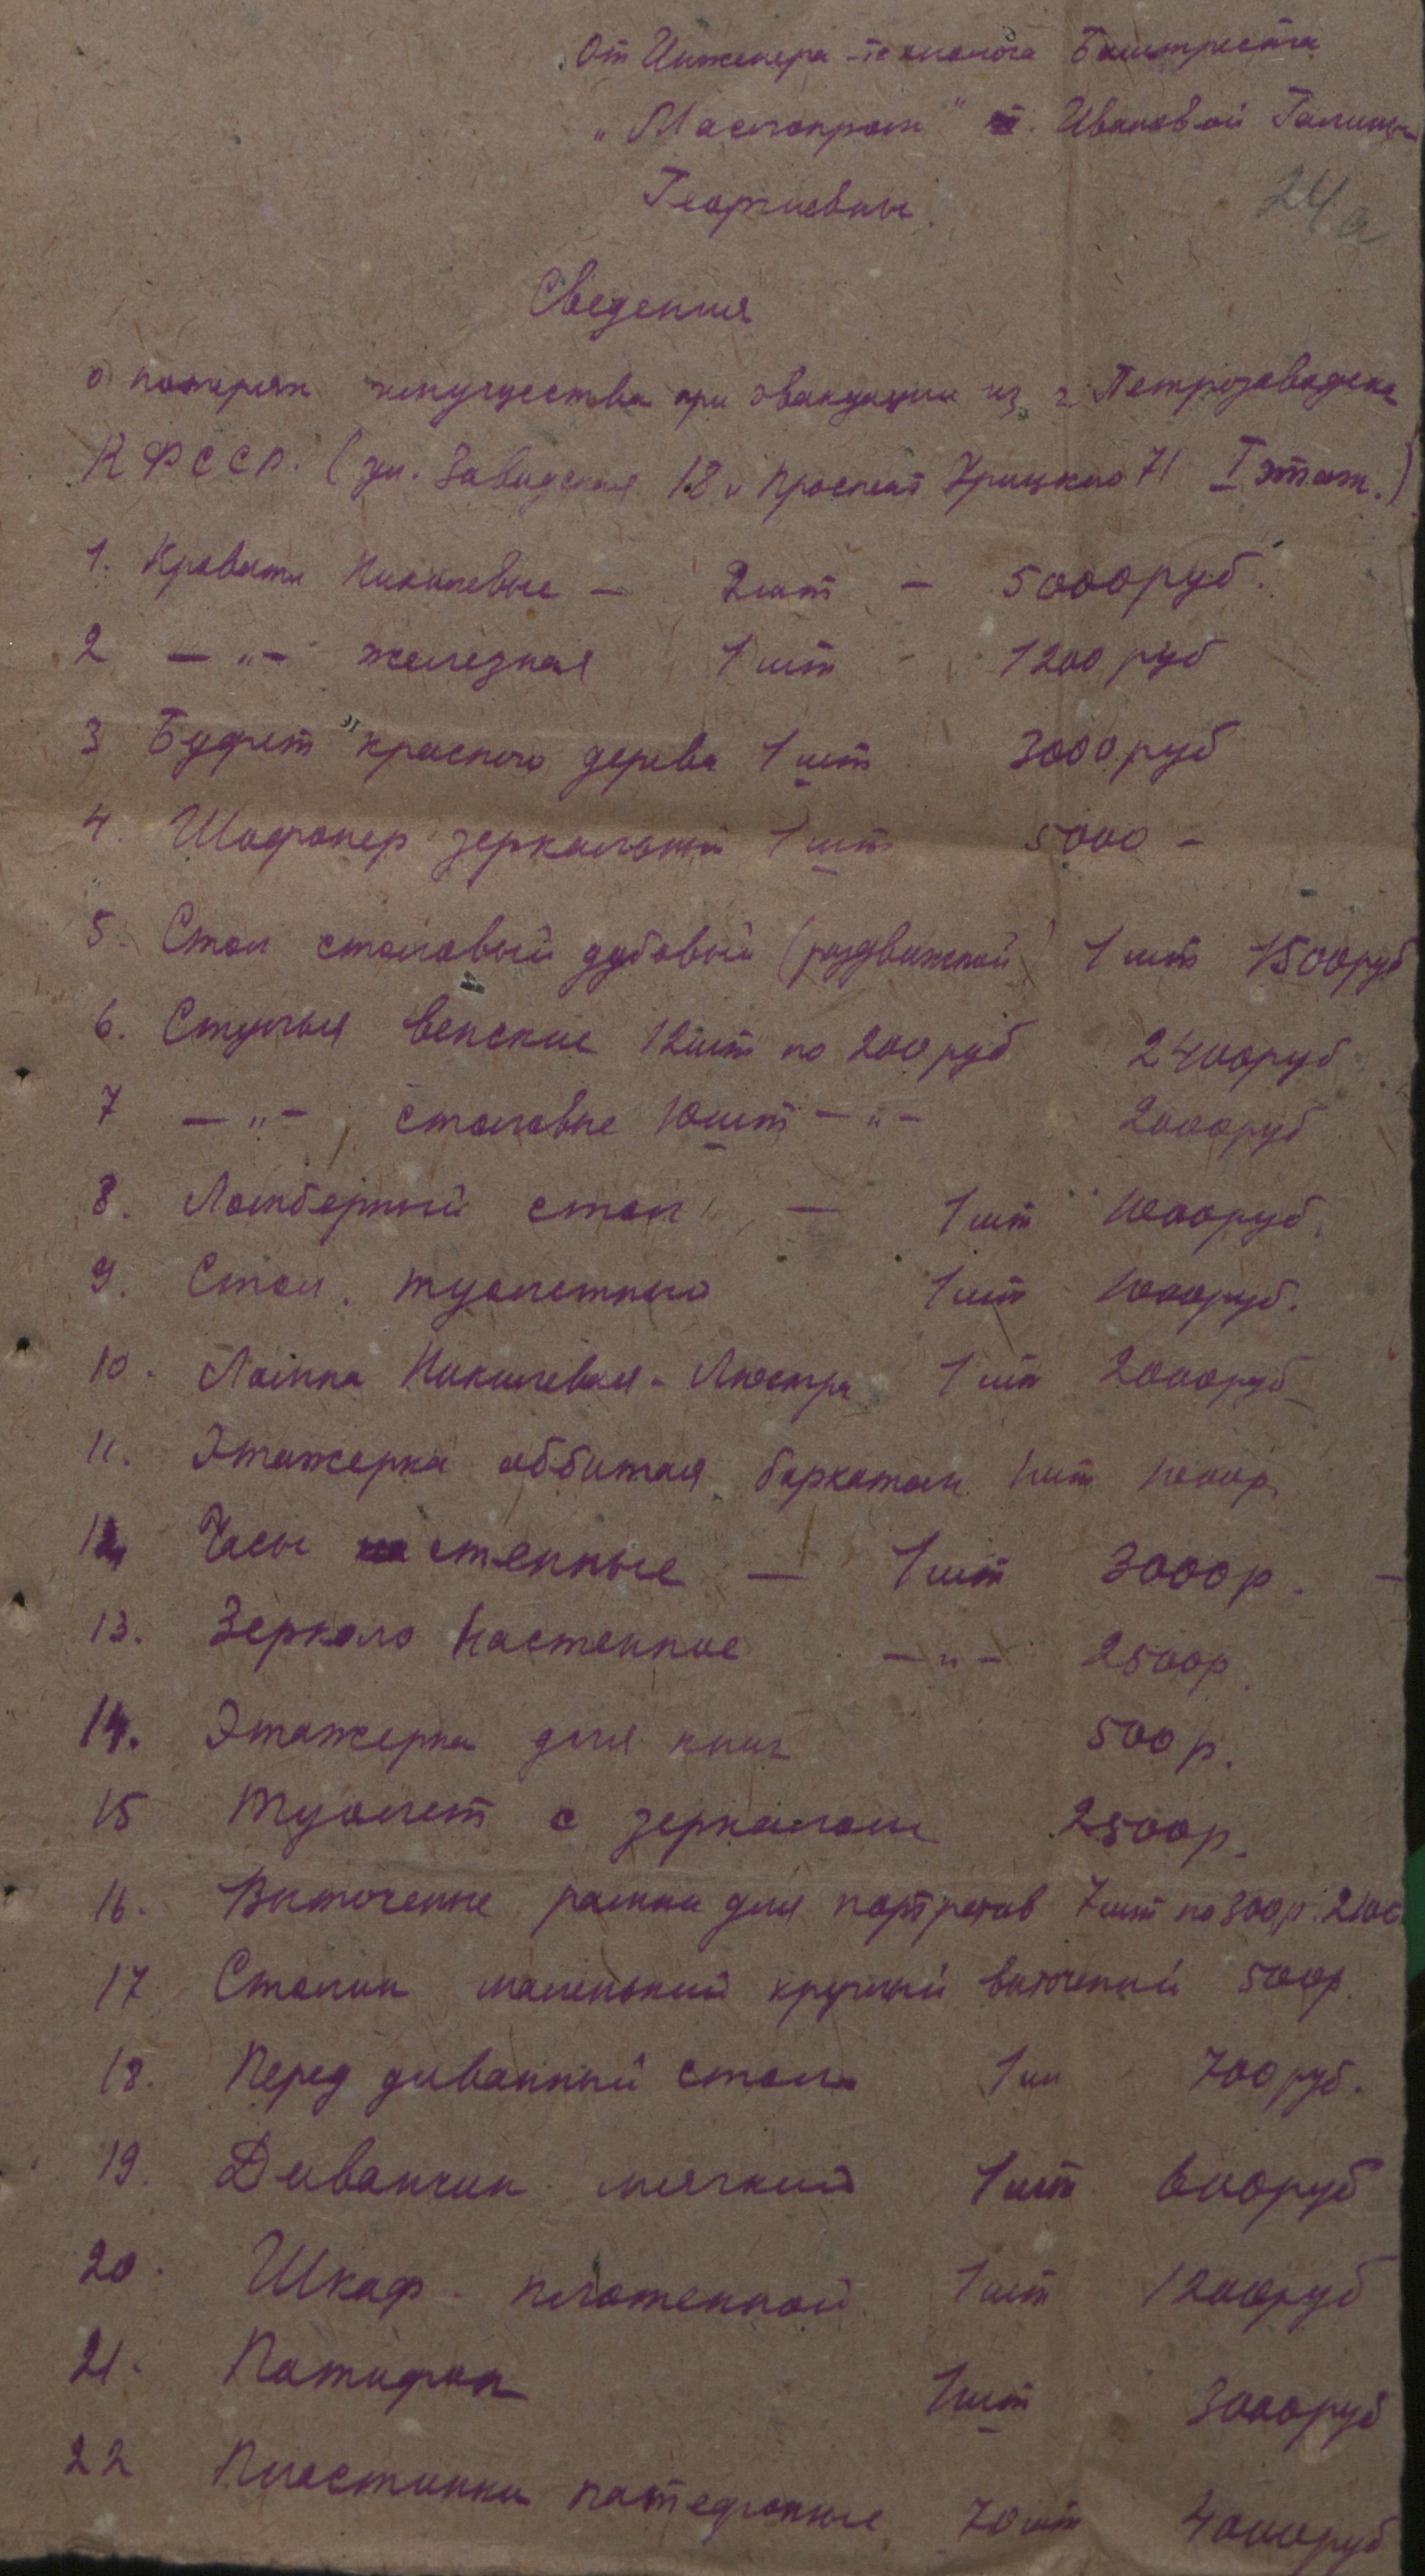 От Инженера-технолога Баштреста
"Маслопром" т. Ивановой Галины
Георгиевны.
24а
Сведения
о потерях имущества при эвакуации из г. Петрозаводска
КФССР. (ул. Заводская 18 и Проспект Урицкого 71 I этаж.)
1. Кровати Никилевые — 2 шт — 5000 руб.
2 — " — железная 1 шт - 1200 руб
3 Буфет красного дерева 1 шт 3000 руб
4. Шифонер зеркальный 1 шт 5000 -
5. Стол столовый дубовый (раздвижной) 1 шт 1500 руб
6. Стулья венские 12 шт по 200 руб 2400 руб
7 — " — столовые 10 шт — " — 2000 руб
8. Ломберный стол — 1 шт 1000 руб.
9. Стол. туалетный 1 шт 1000 руб.
10. Лампа Никилевая - Люстра 1 шт 2000 руб
11. Этажерка оббитая бархатом 1 шт 1000 р.
12. Часы стенные — 1 шт 3000 р. -
13. Зеркало настенное — " — 2500 р.
14. Этажерка для книг 500 р.
15 Туалет с зеркалом 2500 р.
16. Выточеные рамки для портретов 7 шт по 300 р. 2100
17 Столик маленький круглый выточенный 500 р.
18. Перед диванный стол 1 ш 700 руб.
19. Диванчик мягкий 1 шт 600 руб
20. Шкаф платенной 1 шт 1200 руб
21. Патифон 1 шт 3000 руб
22 Пластинки патефонные 70 шт 4000 руб